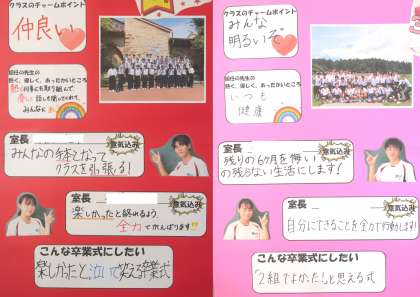 クラスのチャームポイント
仲良い
担任の先生の
熱く、楽しく、あったかいところ
みんなに
室長
意気込み
みんなの絆となって
クラスを引っ張る!
室長
意気込み
楽しかったと終れるよう
全力でがんばります!!
こんな卒業式にしたい
楽しかったと泣いて笑える卒業式
クラスのチャームポイント
みんな
明るいぞ
担任の先生の
熱く、楽しく、あったかいところ
いつも
健康
室長
意気込み
残りの6ヶ月を悔い
の残らない生活にします!
室長
意気込み
自分にできることを全力で行動します!
こんな卒業式にしたい
「2組でよかった!」と思える式